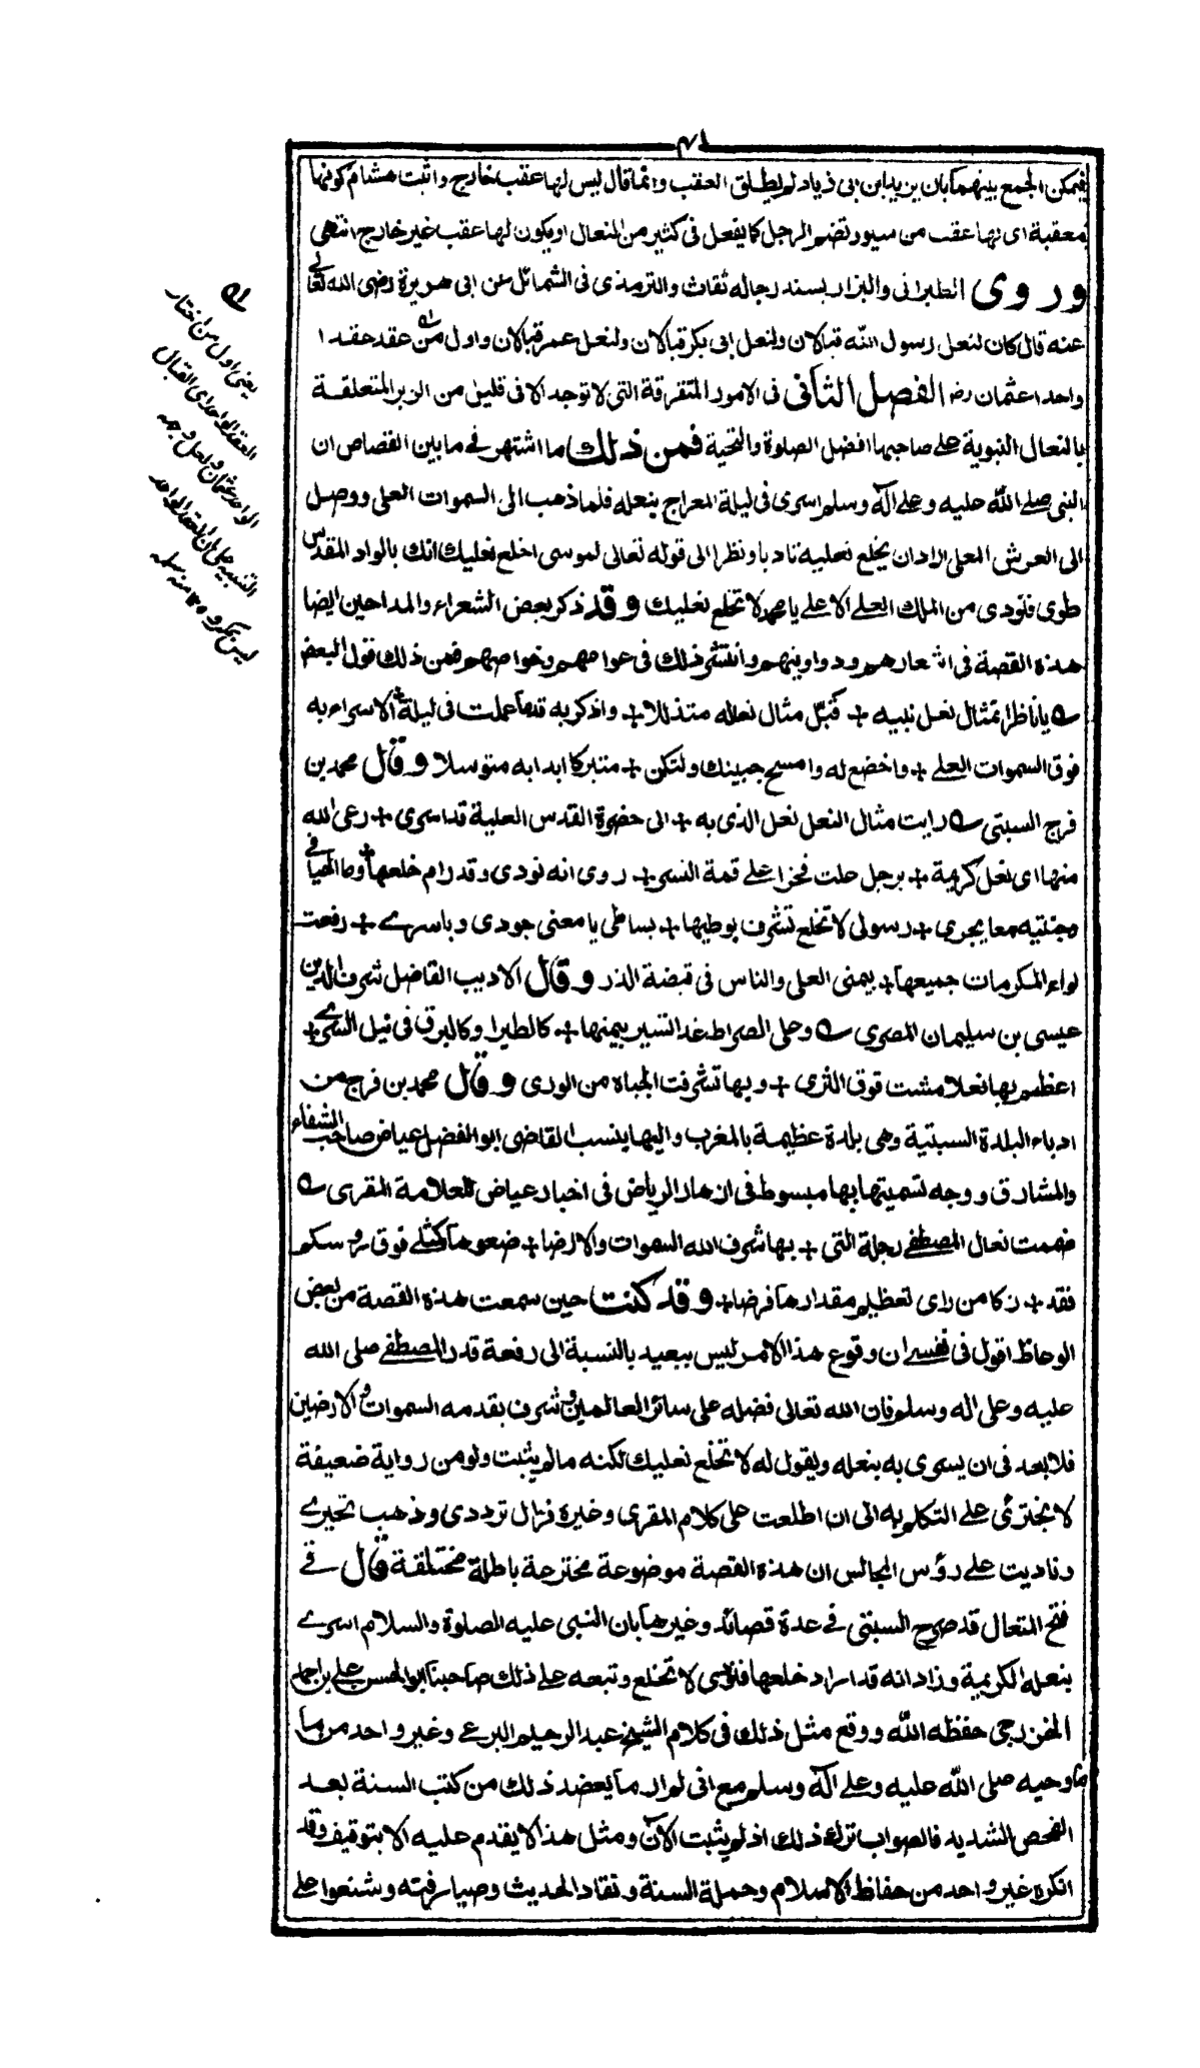 ٤١
فيمكن الجمع بينهما بان يزيد ابن ابى زياد لم يطلق العقب وانما قال ليس لها عقب خارج واثبت هشام كونها
معقبة اى لها عقب من سيور تضم الرجل كما يفعل فى كثير من النعال او يكون لها عقب غير خارج انتهى
وروى الطبرانى والبزار بسند رجاله ثقات والترمذى فى الشمائل عن ابى هريرة رضى الله تعالى
عنه قال كان لنعل رسول الله قبالان ولنعل ابى بكر قبالان ولنعل عمر قبالان واول من عقد عقدا
واحدا عثمان رضه الفصل الثانى فى الامور المتفرقة التى لا توجد الا فى قليل من الزبر المتعلقة
بالنعال النبوية على صاحبها افضل الصلوة والتحية فمن ذلك ما اشتهر فى ما بين القصاص ان
النبى صلى الله عليه وعلى آله وسلم اسرى فى ليلة المعراج بنعله فلما ذهب الى السموات العلى ووصل
الى العرش المعلى اراد ان يخلع نعليه تادبا ونظرا الى قوله تعالى لموسى اخلع نعليك انك بالواد المقدس
طوى فنودى من الملك العلى الاعلى يا محمد لا تخلع نعليك وقد ذكر بعض الشعراء والمداحين ايضا
هذه القصة فى اشعارهم ودواوينهم وانتشر ذلك فى عوامهم وخواصهم فمن ذلك قول البعض
يا ناظرا تمثال نعل نبيه + قبّل مثال نعاله متذللا + واذكر به قدما علت فى ليلة + الاسراء به
فوق السموات العلى + واخضع له وامسح جبينك ولتكن + متبركا ابدا به متوسلا وقال محمد بن
فرج السبتى رايت مثال النعل نعل الذى به + الى حضرة القدس العلية قد اسرى + رعى الله
منها اى نعل كريمة + برجل حلت فخرا على قمة النسر + روى انه نودى وقد رام خلعها + وما الحيا فى
وجنتيه معا يجرى + رسولى لا تخلع تشرف بوطيها + بساطى يا معنى جودى وياسرى + رفعت
لواء المكرمات جميعها + بيمنى العلى والناس فى قبضة الذر وقال الاديب الفاضل شرف الدين
عيسى بن سليمان المصرى وعلى الصراط غدا تسير بيمنها + كالطير او كالبرق فى نيل السرى +
اعظم بها نعلا مشت فوق الثرى + وبها تشرفت الجباه من الورى وقال محمد بن فرج من
ادباء البلدة السبتية وهى بلدة عظيمة بالمغرب واليها ينسب القاضى ابو الفضل عياض صاحب الشفاء
والمشارق ووجه تسميتها بها مبسوط فى ازهار الرياض فى اخبار عياض للعلامة المقرى
نعال المصطفى رجله التى + بها شرف الله السموات والارضا + ضعوها كمثلى فوق روسكم
فقد + زكا من راى تعظيم مقدارها فرضا + وقد كنت حين سمعت هذه القصة من بعض
الوعاظ اقول فى نفسى ان وقوع هذا الامر ليس ببعيد بالنسبة الى رفعة قدر المصطفى صلى الله
عليه وعلى اله وسلم فان الله تعالى فضله على سائر العالمين وشرف بقدمه السموات والارضين
فلا بعد فى ان يسرى به بنعله ويقول له لا تخلع نعليك لكنه ما لم يثبت ولو من رواية ضعيفة
لا نجترئ على التكلم به الى ان اطلعت على كلام المقرى وغيره فزال ترددى وذهب تحيرى
وناديت على رؤس المجالس ان هذه القصة موضوعة مخترعة باطلة مختلقة قال فى
فتح المتعال قد صرح السبتى فى عدة قصائد وغيرها بان النبى عليه الصلوة والسلام اسرى
بنعله الكريمة وزاد انه قد اراد خلعها فنودى لا تخلع وتبعه على ذلك صاحبنا ابو الحسن على بن احمد
الخزرجى حفظه الله ووقع مثل ذلك فى كلام الشيخ عبد الرحيم البرعى وغير واحد من
مادحيه صلى الله عليه وعلى آله وسلم مع انى لم ار ما يعضد ذلك من كتب السنة بعد
الفحص الشديد فالصواب ترك ذلك اذ لم يثبت الآن ومثل هذا لا يقدم عليه الا بتوقيف وقد
انكره غير واحد من حفاظ الاسلام وحملة السنة ونقاد الحديث وصيارفته وشنعوا على
يعنى اول من اختار
العقد الواحد اى القبال
الواحد عثمان ولعل وجهه
التنبيه على ان العقد الواحد
ليس بمكروه ١٢ منه سلمه